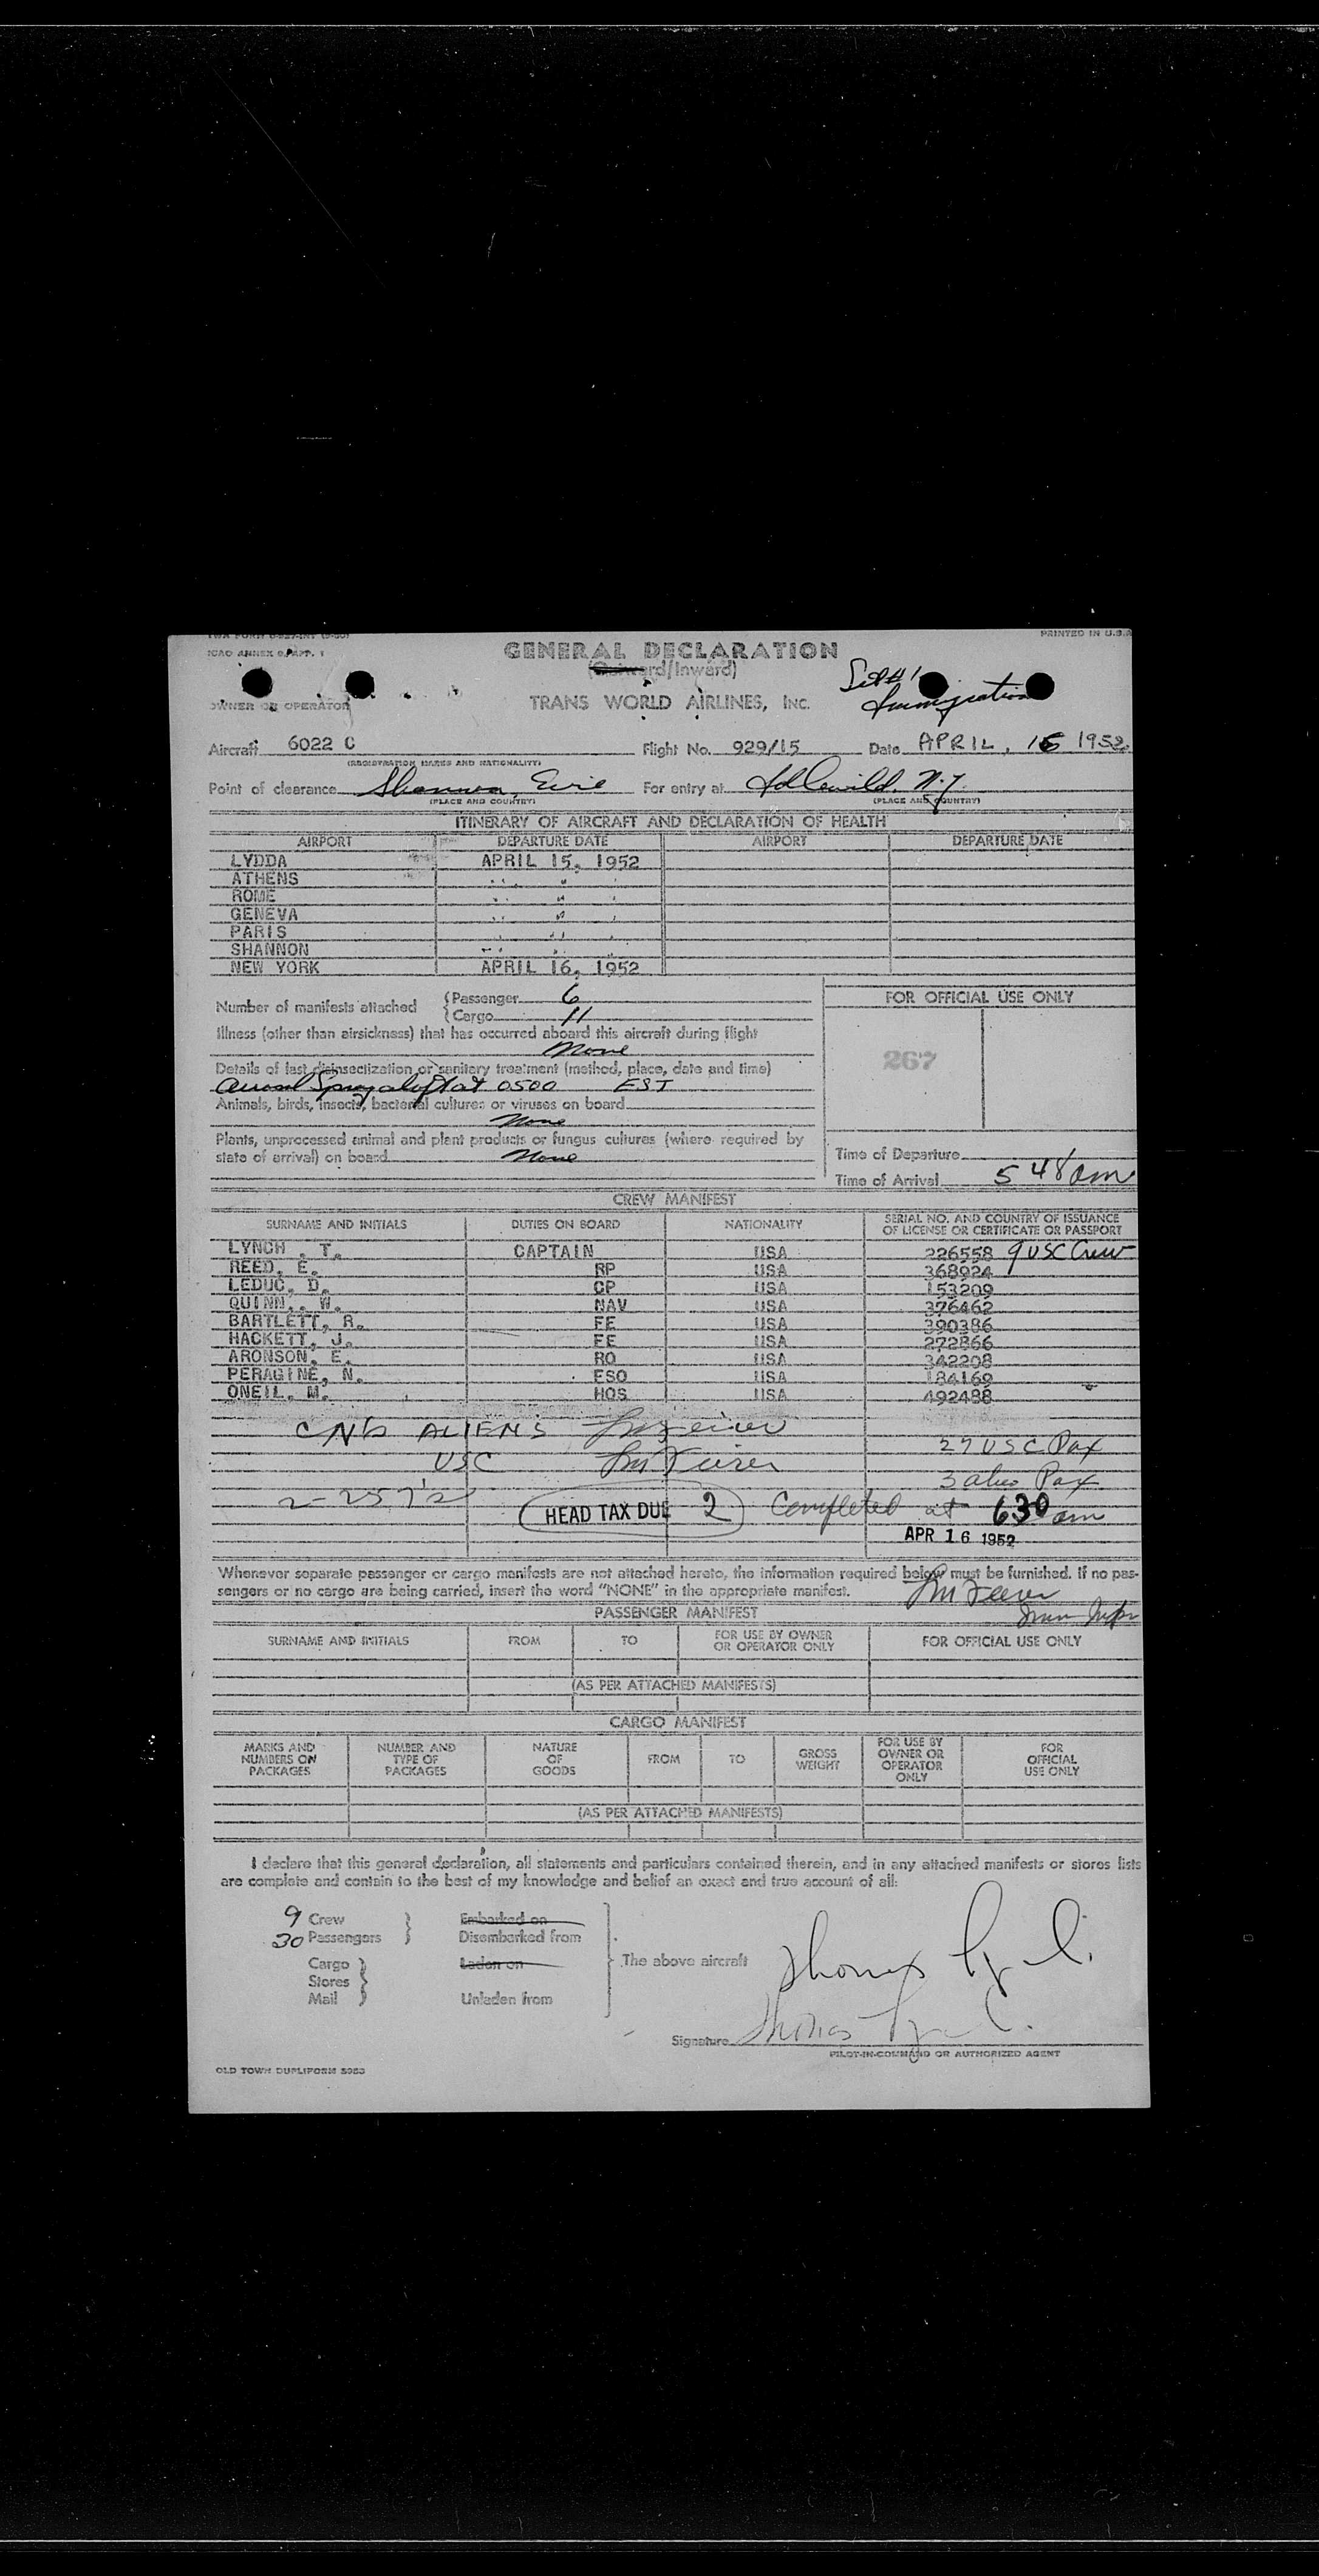 TWA FORM
PRINTED IN U.S.A
ICAO ANNEX 9, APP. 1
GENERAL DECLARATION
(Outward/Inward)
Set #1
Immigration
OWNER OR OPERATOR
TRANS WORLD AIRLINES, INC.
Aircraft 6022 C Flight No. 929/15 Date APRIL, 16 1952
(REGISTRATION MARKS AND NATIONALITY)
Point of clearance Shannon, Eire For entry at Idlewild, N.Y.
(PLACE AND COUNTRY) (PLACE AND COUNTRY)
ITINERARY OF AIRCRAFT AND DECLARATION OF HEALTH
AIRPORT DEPARTURE DATE AIRPORT DEPARTURE DATE
LYDDA APRIL 15, 1952
ATHENS " "
ROME " "
GENEVA " "
PARIS " "
SHANNON " "
NEW YORK APRIL 16, 1952
Number of manifests attached { Passenger 6
{ Cargo 11
FOR OFFICIAL USE ONLY
Illness (other than airsickness) that has occurred aboard this aircraft during flight
None
267
Details of last disinsectization or sanitary treatment (method, place, date and time)
Aerosol Spray aloft at 0500 EST
Animals, birds, insects, bacterial cultures or viruses on board
None
Plants, unprocessed animal and plant products or fungus cultures (where required by
state of arrival) on board None
Time of Departure
Time of Arrival 5 48 am
CREW MANIFEST
SURNAME AND INITIALS DUTIES ON BOARD NATIONALITY SERIAL NO. AND COUNTRY OF ISSUANCE OF LICENSE OR CERTIFICATE OR PASSPORT
LYNCH , T. CAPTAIN USA 226558 9 USC Crew
REED, E. RP USA 368924
LEDUC, D. CP USA 153209
QUINN,. W. NAV USA 376462
BARTLETT, R. FE USA 390386
HACKETT, J. FE USA 272866
ARONSON, E. RO USA 342208
PERAGINE, N. FSO USA 184169
ONEIL, M. HOS USA 492488
ALIENS
27 USC Pax
USC
3 alien Pax
HEAD TAX DUE 2 Completed at 630 am
APR 16 1952
Whenever separate passenger or cargo manifests are not attached hereto, the information required below must be furnished. If no pas-
sengers or no cargo are being carried, insert the word "NONE" in the appropriate manifest.
PASSENGER MANIFEST
SURNAME AND INITIALS FROM TO FOR USE BY OWNER OR OPERATOR ONLY FOR OFFICIAL USE ONLY
(AS PER ATTACHED MANIFESTS)
CARGO MANIFEST
MARKS AND NUMBERS ON PACKAGES NUMBER AND TYPE OF PACKAGES NATURE OF GOODS FROM TO GROSS WEIGHT FOR USE BY OWNER OR OPERATOR ONLY FOR OFFICIAL USE ONLY
(AS PER ATTACHED MANIFESTS)
I declare that this general declaration, all statements and particulars contained therein, and in any attached manifests or stores lists
are complete and contain to the best of my knowledge and belief an exact and true account of all:
9 Crew Embarked on
30 Passengers Disembarked from
Cargo Laden on The above aircraft Thomas
Stores
Mail Unladen from
Signature Thomas
PILOT-IN-COMMAND OR AUTHORIZED AGENT
OLD TOWN DUPLIFORM